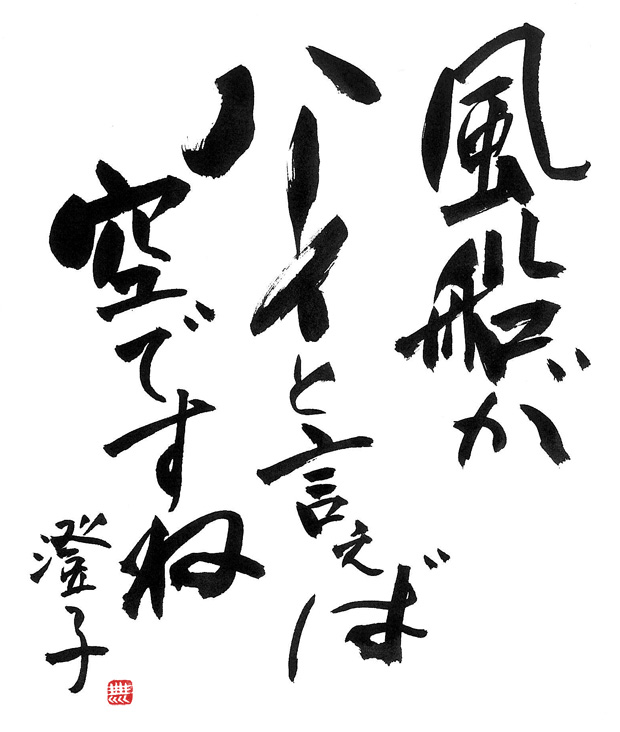 風船が
ハーイと言えば
空ですね
澄子
無